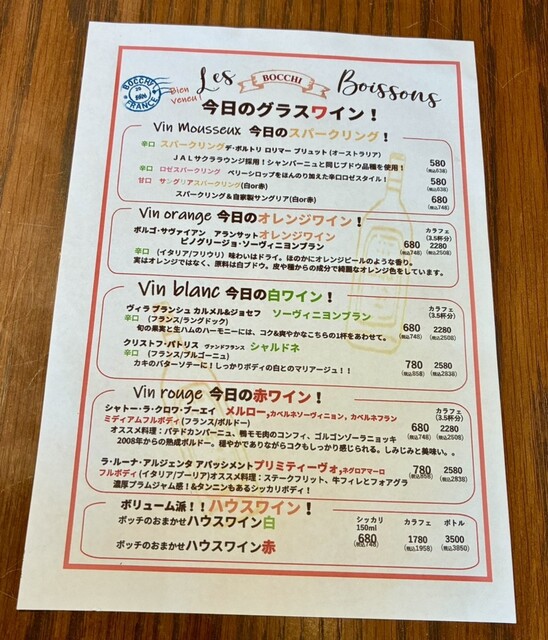 BOCCHI
FRANCE
Bien veneu!
Les BOCCHI Boissons
今日のグラスワイン!
Vin Mousseux 今日のスパークリング!
辛口 スパークリングデ・ボルトリ ロリマー ブリュット(オーストラリア)
JALサクララウンジ採用!シャンパーニュと同じブドウ品種を使用! 580
(税込638)
辛口 ロゼスパークリング ベリーシロップをほんのり加えた辛口ロゼスタイル! 580
(税込638)
甘口 サングリアスパークリング(白or赤)
スパークリング&自家製サングリア(白or赤) 680
(税込748)
Vin orange 今日のオレンジワイン!
ボルゴ・サヴァイアン アランサットオレンジワイン カラフェ
(3.5杯分)
ピノグリージョ・ソーヴィニヨンブラン 680 2280
(税込748) (税込2508)
辛口 (イタリア/フリウリ) 味わいはドライ。ほのかにオレンジピールのような香り。
実はオレンジではなく、原料は白ブドウ。皮や種からの成分で綺麗なオレンジ色をしています。
Vin blanc 今日の白ワイン!
ヴィラ ブランシュ カルメル&ジョセフ ソーヴィニヨンブラン カラフェ
(3.5杯分)
辛口 (フランス/ラングドック)
旬の果実と生ハムのハーモニーには、コク&爽やかなこちらの1杯をあわせて。 680 2280
(税込748) (税込2508)
クリストフ・パトリス ヴァンドフランス シャルドネ
辛口 (フランス/ブルゴーニュ) 780 2580
カキのバターソテーに!しっかりボディの白とのマリアージュ!! (税込858) (税込2838)
Vin rouge 今日の赤ワイン!
シャトー・ラ・クロワ・ブーエイ メルロー,カベルネソーヴィニョン, カベルネフラン カラフェ
(3.5杯分)
ミディアムフルボディ(フランス/ボルドー) 680 2280
オススメ料理:パテドカンパーニュ、鴨モモ肉のコンフィ、ゴルゴンゾーラニョッキ (税込748) (税込2508)
2008年からの熟成ボルドー。穏やかでありながらコクもしっかり感じられる。しみじみと美味い。。
ラ・ルーナ・アルジェンタ アパッシメントプリミティーヴォ,ネグロアマーロ 780 2580
(税込858) (税込2838)
フルボディ(イタリア/プーリア)オススメ料理:ステークフリット、牛フィレとフォアグラ
濃厚プラムジャム感!&タンニンもあるシッカリボディ!
ボリューム派!!ハウスワイン!
シッカリ
150ml カラフェ ボトル
ボッチのおまかせハウスワイン白
680 1780 3500
(税込748) (税込1958) (税込3850)
ボッチのおまかせハウスワイン赤